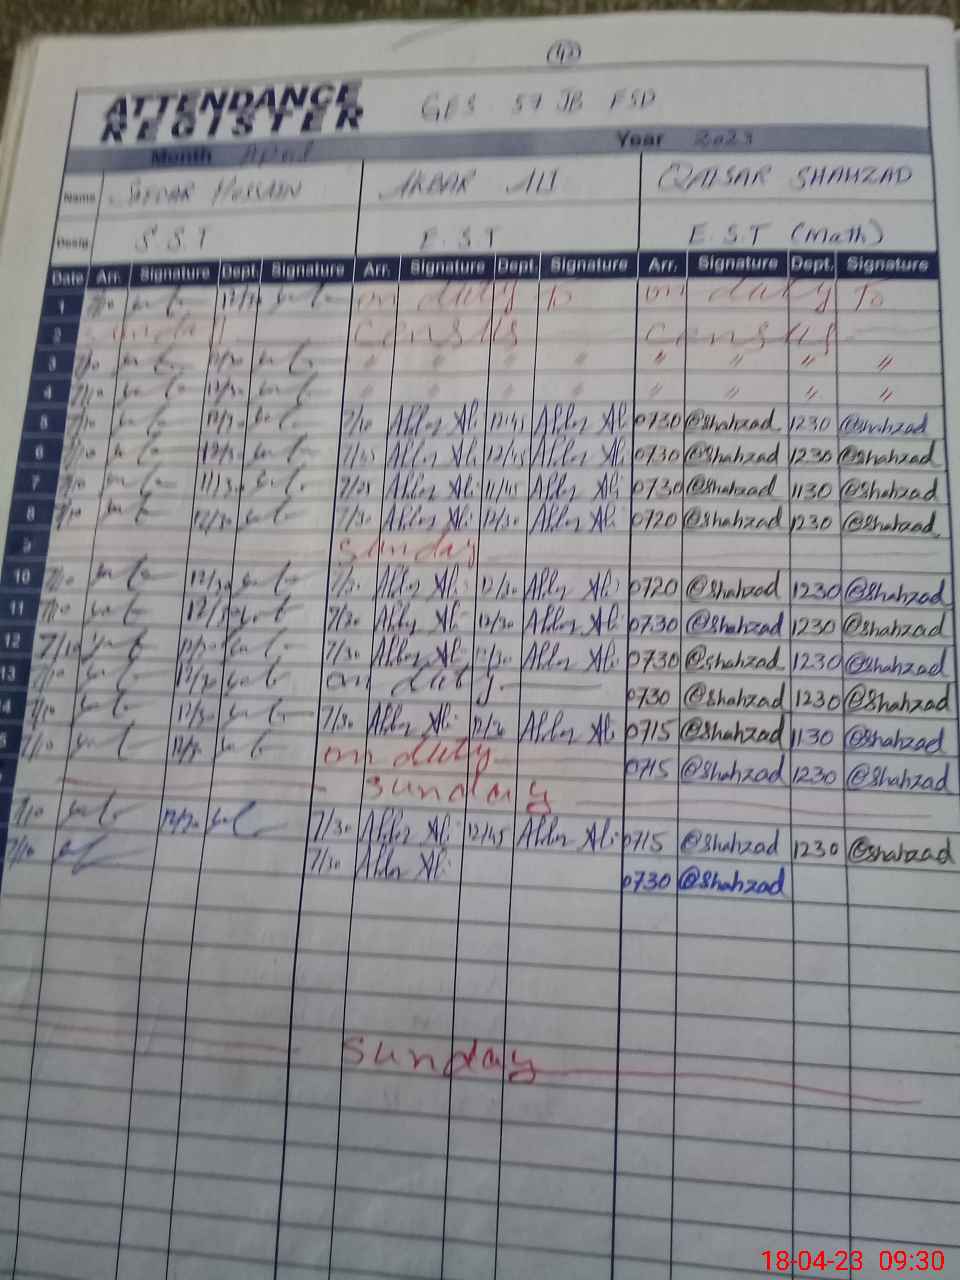 42
ATTENDANCE REGISTER GES 57 JB FSD
Month April Year 2023
Name HUSSAIN AKBAR ALI QAISAR SHAHZAD
Desig. S.S.T E.S.T E.S.T (Math)
Date Arr. Signature Dept. Signature Arr. Signature Dept Signature Arr. Signature Dept. Signature
1 7/10 12/30 on duty to on duty To
2 Sunday census census
3 7/10 12/30 " " " " " " " "
4 7/10 12/30 " " " " " " " "
5 7/10 12/30 7/30 Akbar Ali 12/45 Akbar Ali 0730 @Shahzad 1230 @Shahzad
6 7/10 12/30 Akbar Ali 12/45 Akbar Ali 0730 @Shahzad 1230 @Shahzad
7 7/10 11/30 7/25 Akbar Ali 11/45 Akbar Ali 0730 @Shahzad 1130 @Shahzad
8 7/10 12/30 7/30 Akbar Ali 12/30 Akbar Ali 0720 @Shahzad 1230 @Shahzad
9 Sunday
10 7/10 12/30 7/30 Akbar Ali 12/30 Akbar Ali 0720 @Shahzad 1230 @Shahzad
11 7/10 12/30 7/30 Akbar Ali 12/30 Akbar Ali 0730 @Shahzad 1230 @Shahzad
12 7/10 12/30 7/30 Akbar Ali 12/30 Akbar Ali 0730 @Shahzad 1230 @Shahzad
13 7/10 12/30 on duty 0730 @Shahzad 1230 @Shahzad
14 7/10 12/30 7/30 Akbar Ali 12/30 Akbar Ali 0715 @Shahzad 1130 @Shahzad
7/10 12/30 on duty 0715 @Shahzad 1230 @Shahzad
Sunday
7/10 12/30 7/30 Akbar Ali 12/45 Akbar Ali 0715 @Shahzad 1230 @Shahzad
7/10 7/30 Akbar Ali 0730 @Shahzad
Sunday
18-04-23 09:30